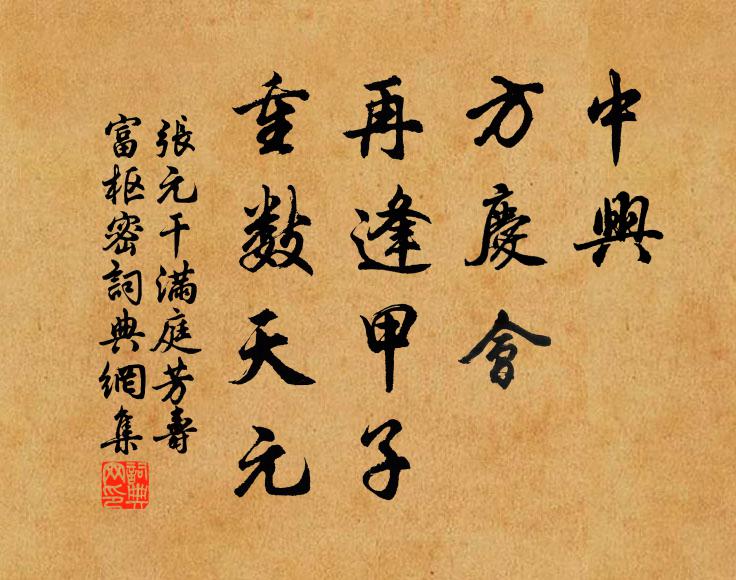 中興
方慶會
再逢甲子
重數天元
張元干滿庭芳壽
富枢密詞典網集
詞典网印